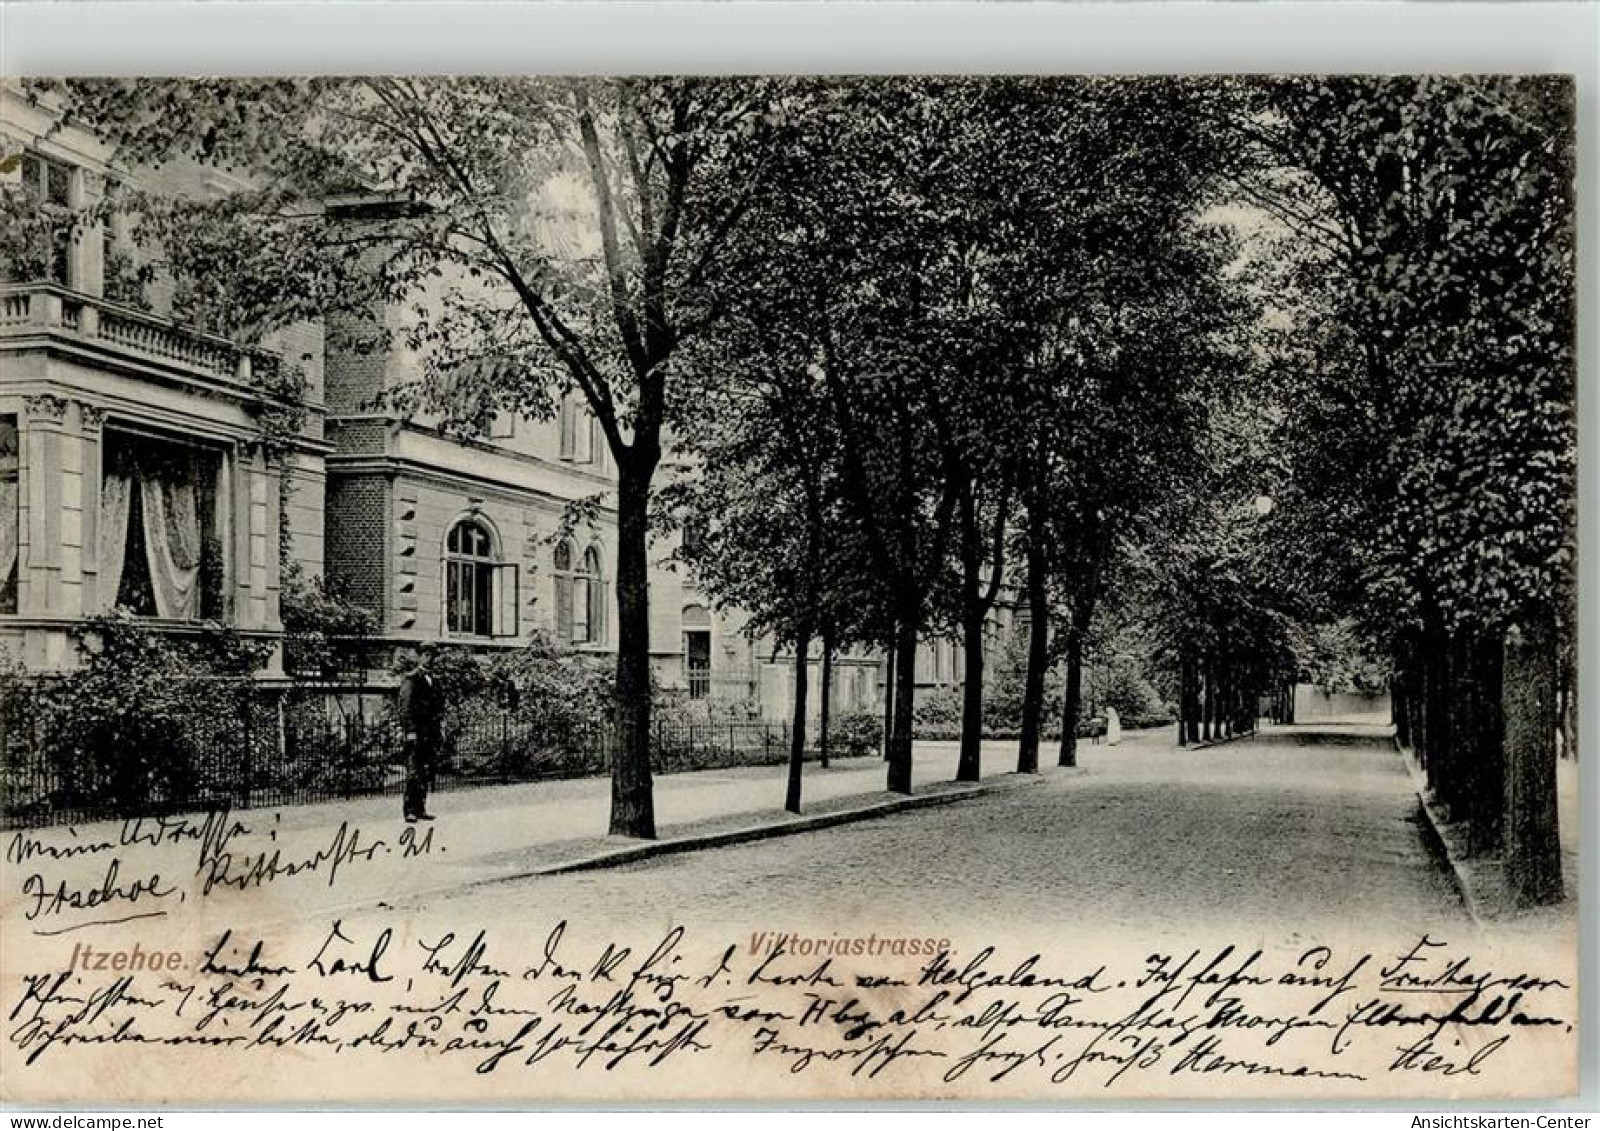 Meine Adresse:
Itzehoe, Ritterstr. 21.
Itzehoe. Viktoriastrasse.
Lieber Karl, besten Dank für d. Karte von Helgoland. Ich fahre auch Freitag vor
Pfingsten n/ Hause u. zw. mit dem Nachtzuge von Hbg. ab, also Samstag Morgen Elberfeld an.
Schreibe mir bitte, ob du auch so fährst. Inzwischen herzl. Gruß Hermann Heil
Ansichtskarten-Center